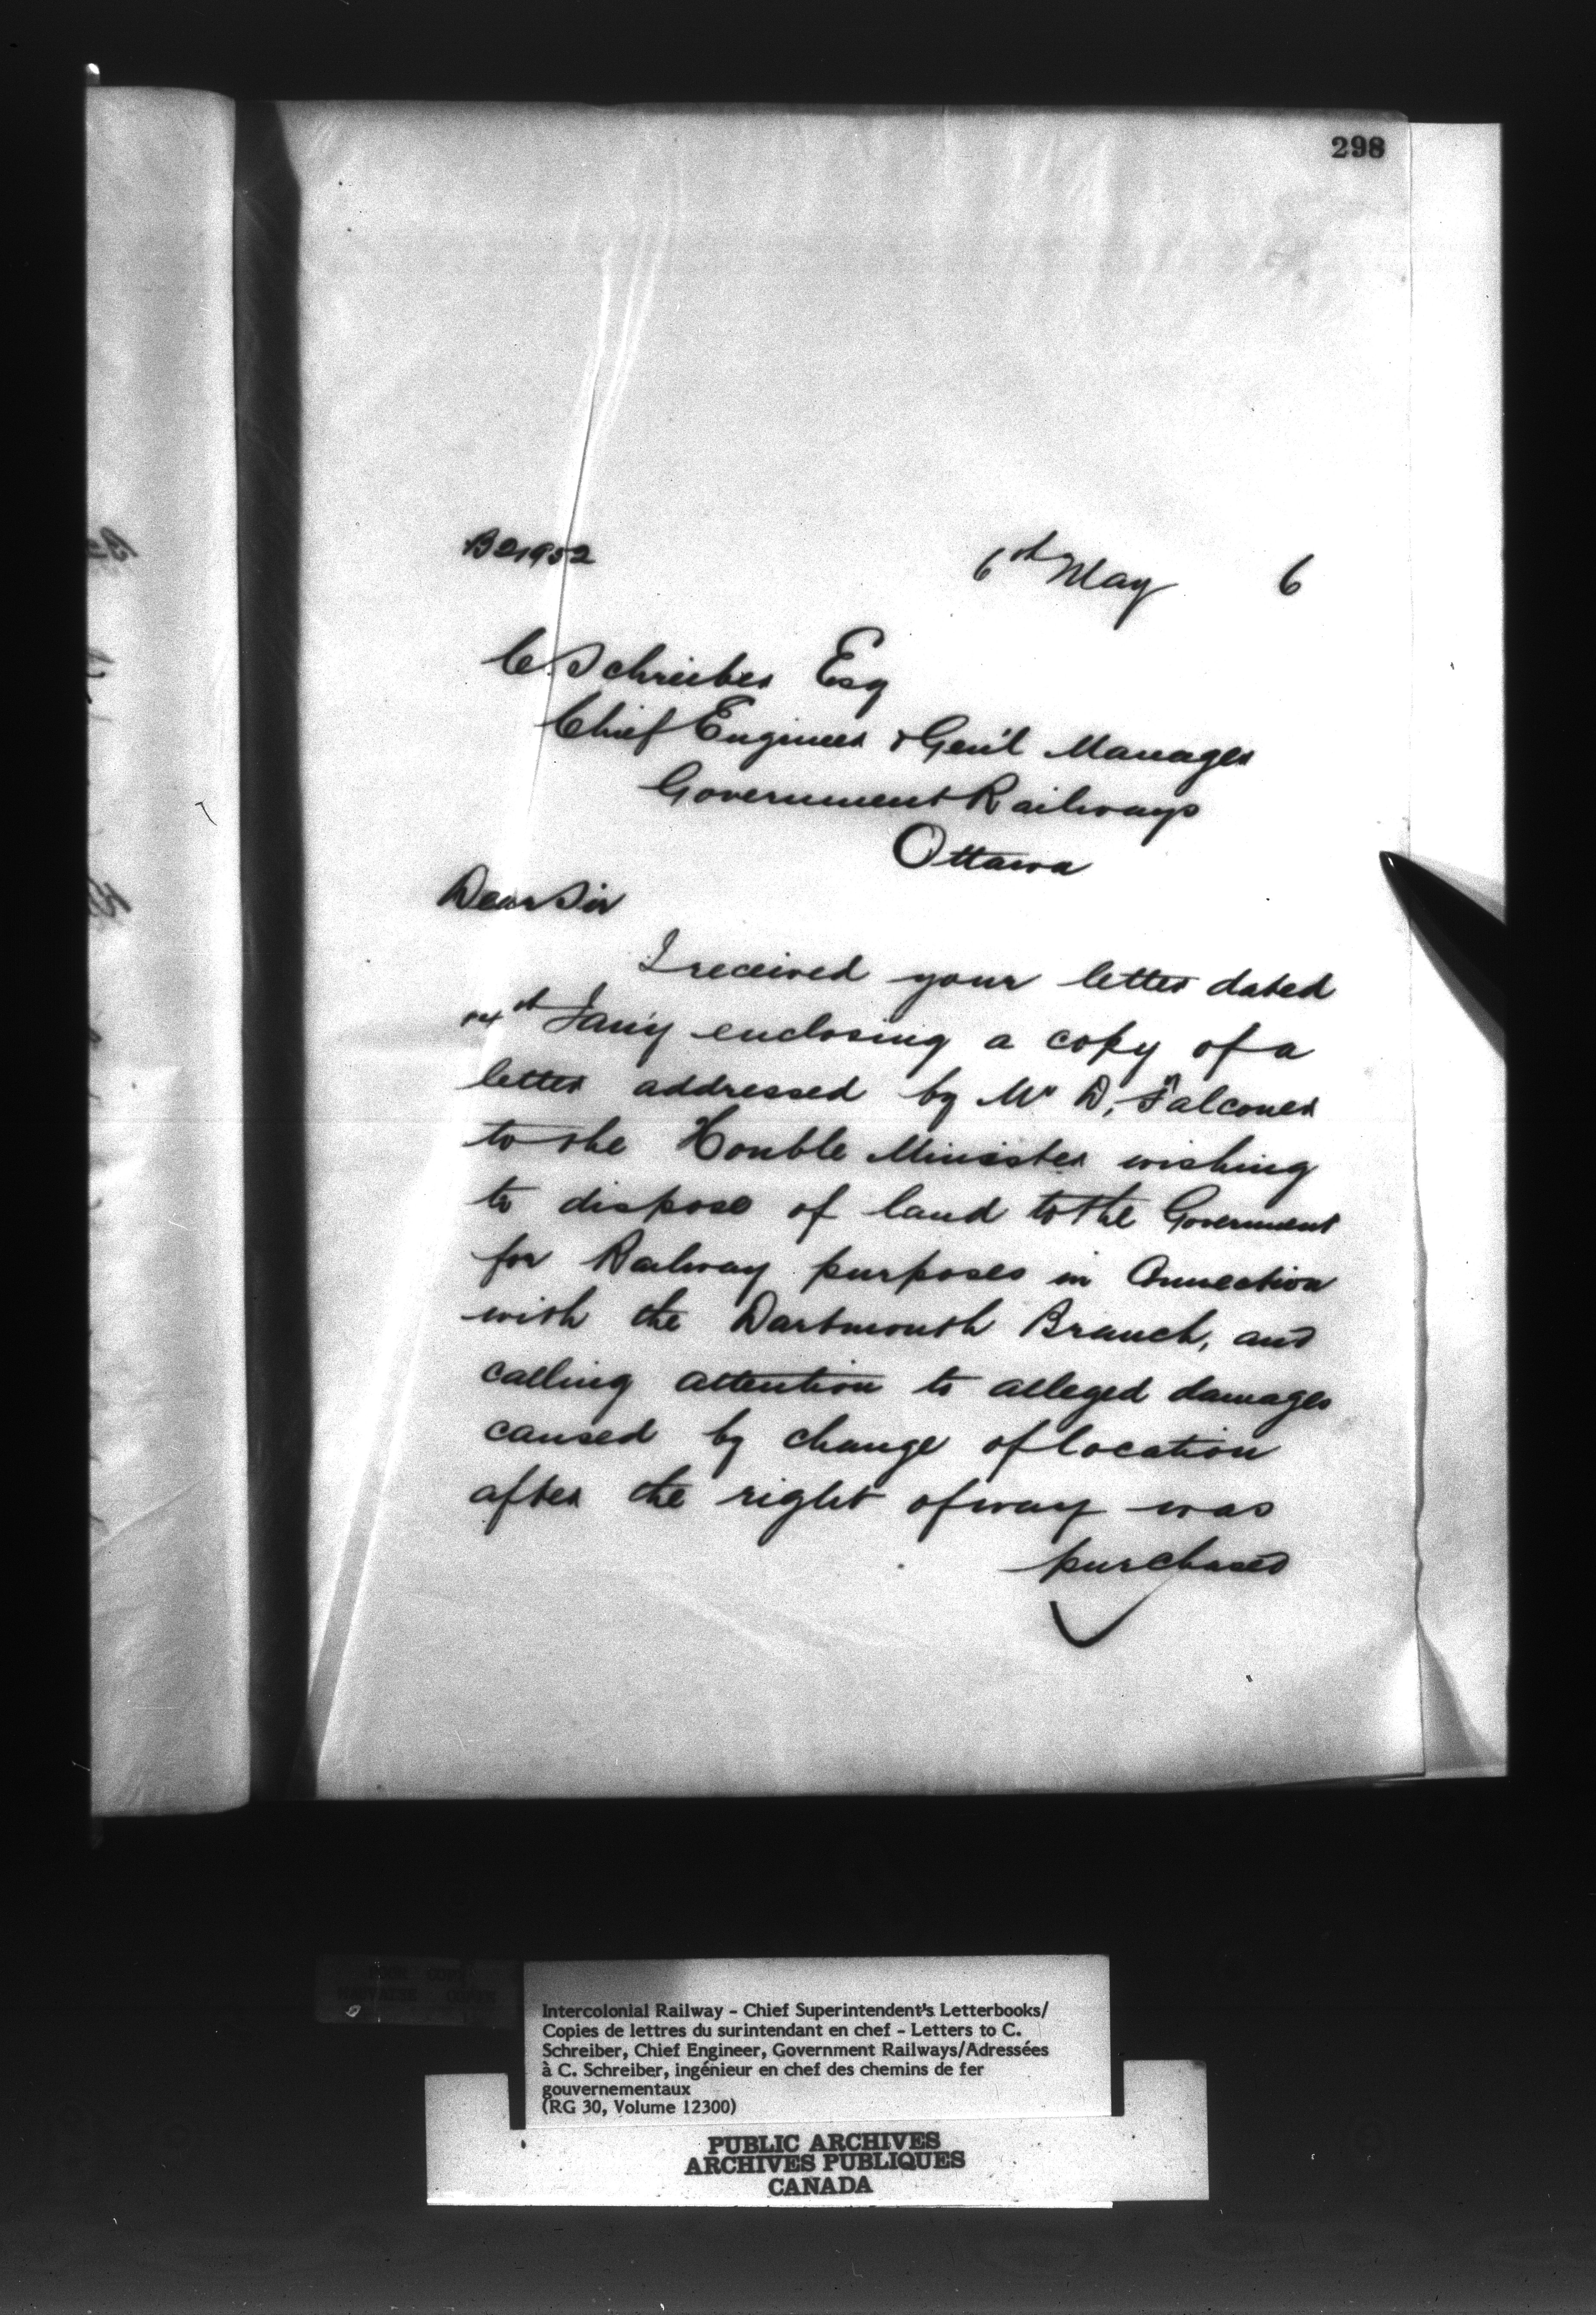 298
B21952
6th May 6
C. Schreiber Esq
Chief Engineer & Gen'l Manager
Government Railways
Ottawa
Dear Sir
I received your letter dated
14th Jan'y enclosing a copy of a
letter addressed by Mr D. Falconer
to the Honble Minister wishing
to dispose of land to the Government
for Railway purposes in Connection
with the Dartmouth Branch, and
calling attention to alleged damages
caused by change of location
after the right of way was
purchased
Intercolonial Railway - Chief Superintendent's Letterbooks/
Copies de lettres du surintendant en chef - Letters to C.
Schreiber, Chief Engineer, Government Railways/Adressées
à C. Schreiber, ingénieur en chef des chemins de fer
gouvernementaux
(RG 30, Volume 12300)
PUBLIC ARCHIVES
ARCHIVES PUBLIQUES
CANADA